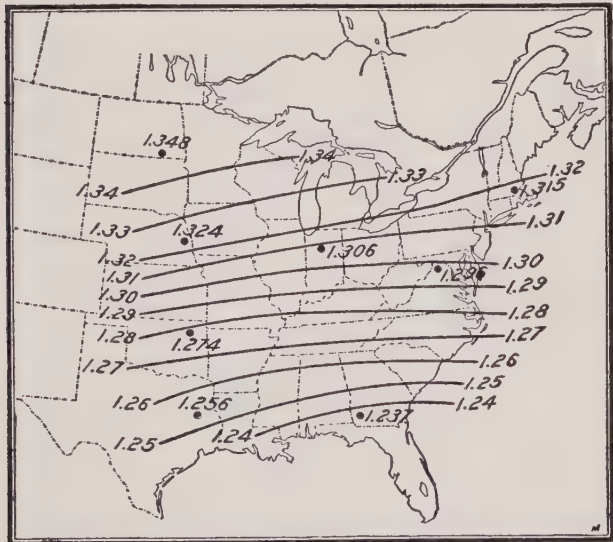 1.348
1.34
1.33
1.32
1.34
1.315
1.33
1.324
1.31
1.32
1.306
1.31
1.30
1.30
1.29
1.29
1.28
1.28
1.274
1.27
1.27
1.26
1.25
1.26
1.256
1.24
1.237
1.25
1.24